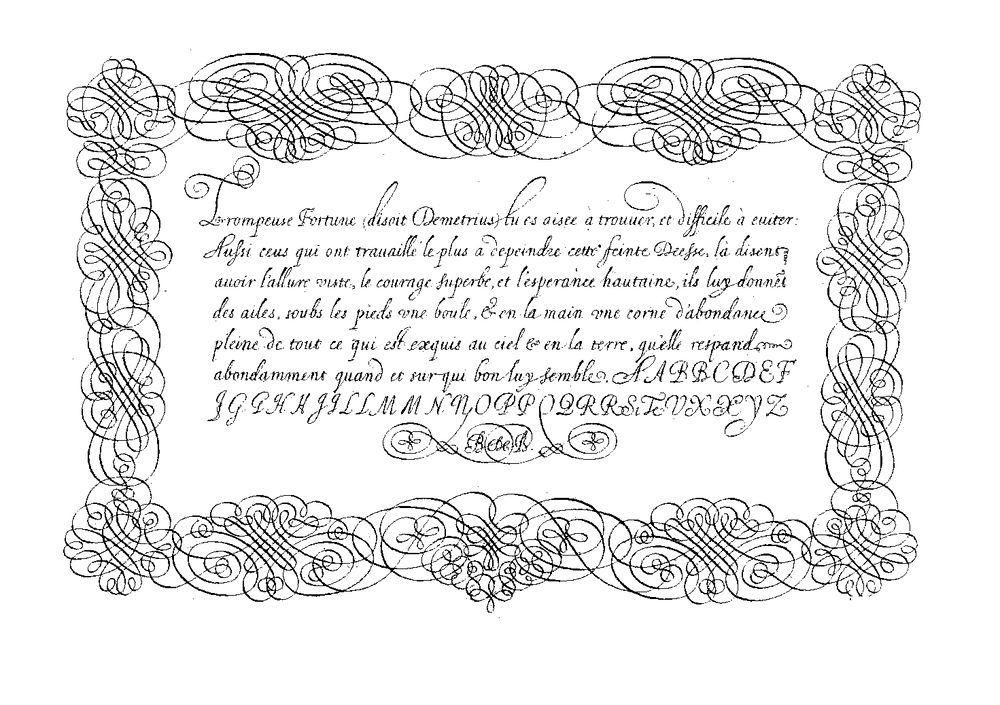 Trompeuse Fortune (disoit Demetrius) tu es aisee à trouver, et difficile à euiter:
Aussi ceus qui ont travaillé le plus à depeindre cette feinte Deesse, là disent
avoir l'allure viste, le courage superbe, et l'esperance hautaine, ils luy donnēt
des ailes, soubs les pieds vne boule, & en la main vne corne d'abondance
pleine de tout ce qui est exquis au ciel & en la terre, qu'elle respand
abondamment quand et sur qui bon luy semble. A A B B C D E F
J G G H H J I L L M M N N O P P Q R R S S T V X X Y Z